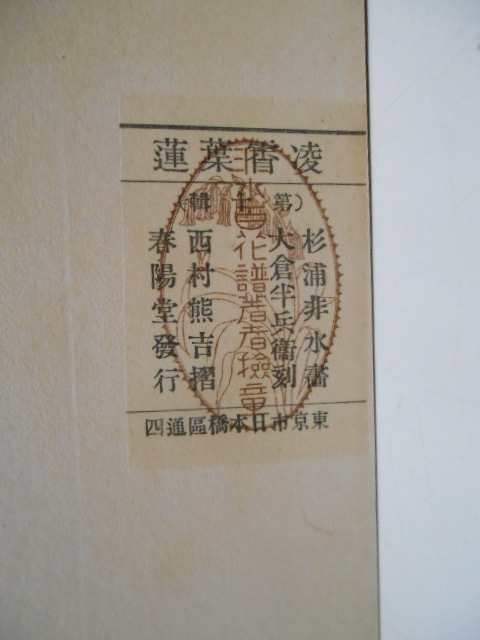 凌霄葉蓮
(第十輯)
杉浦非水畵
大倉半兵衞刻
西村熊吉摺
春陽堂發行
東京市日本橋區通四
非水百花譜著者檢章